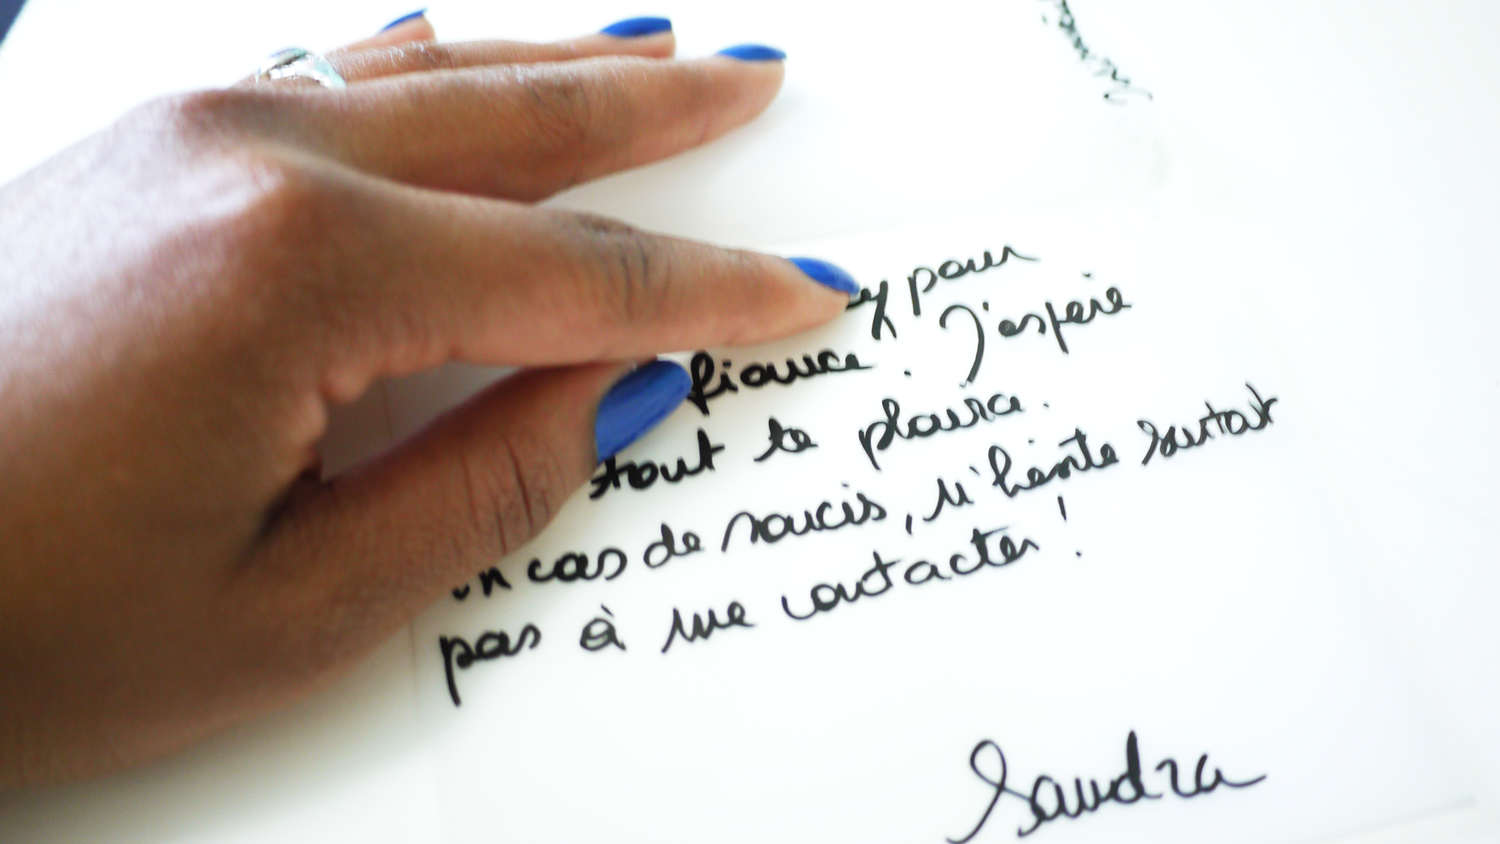 pour
fiance. J'espère
tout te plaira.
en cas de soucis, n'hésite surtout
pas à me contacter !
Sandra